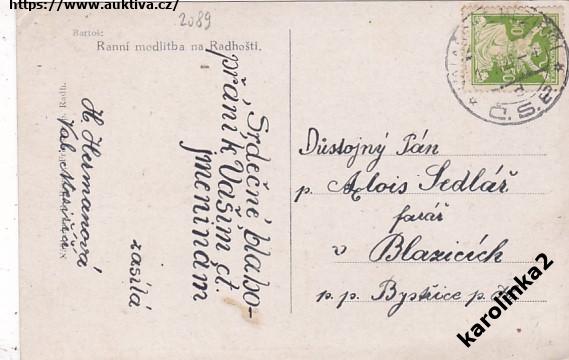 https://www.auktiva.cz/
2089
Bartoš:
Ranní modlitba na Radhošti.
Srdečné blaho-
přání k Vašim ct.
jmeninám
zasílá
H. Hermanová
Val.
Důstojný Pán
p. Alois Sedlář
farář
v Blazicích
p. p. Bystřice p. H.
Č.S.R.
karolinka2